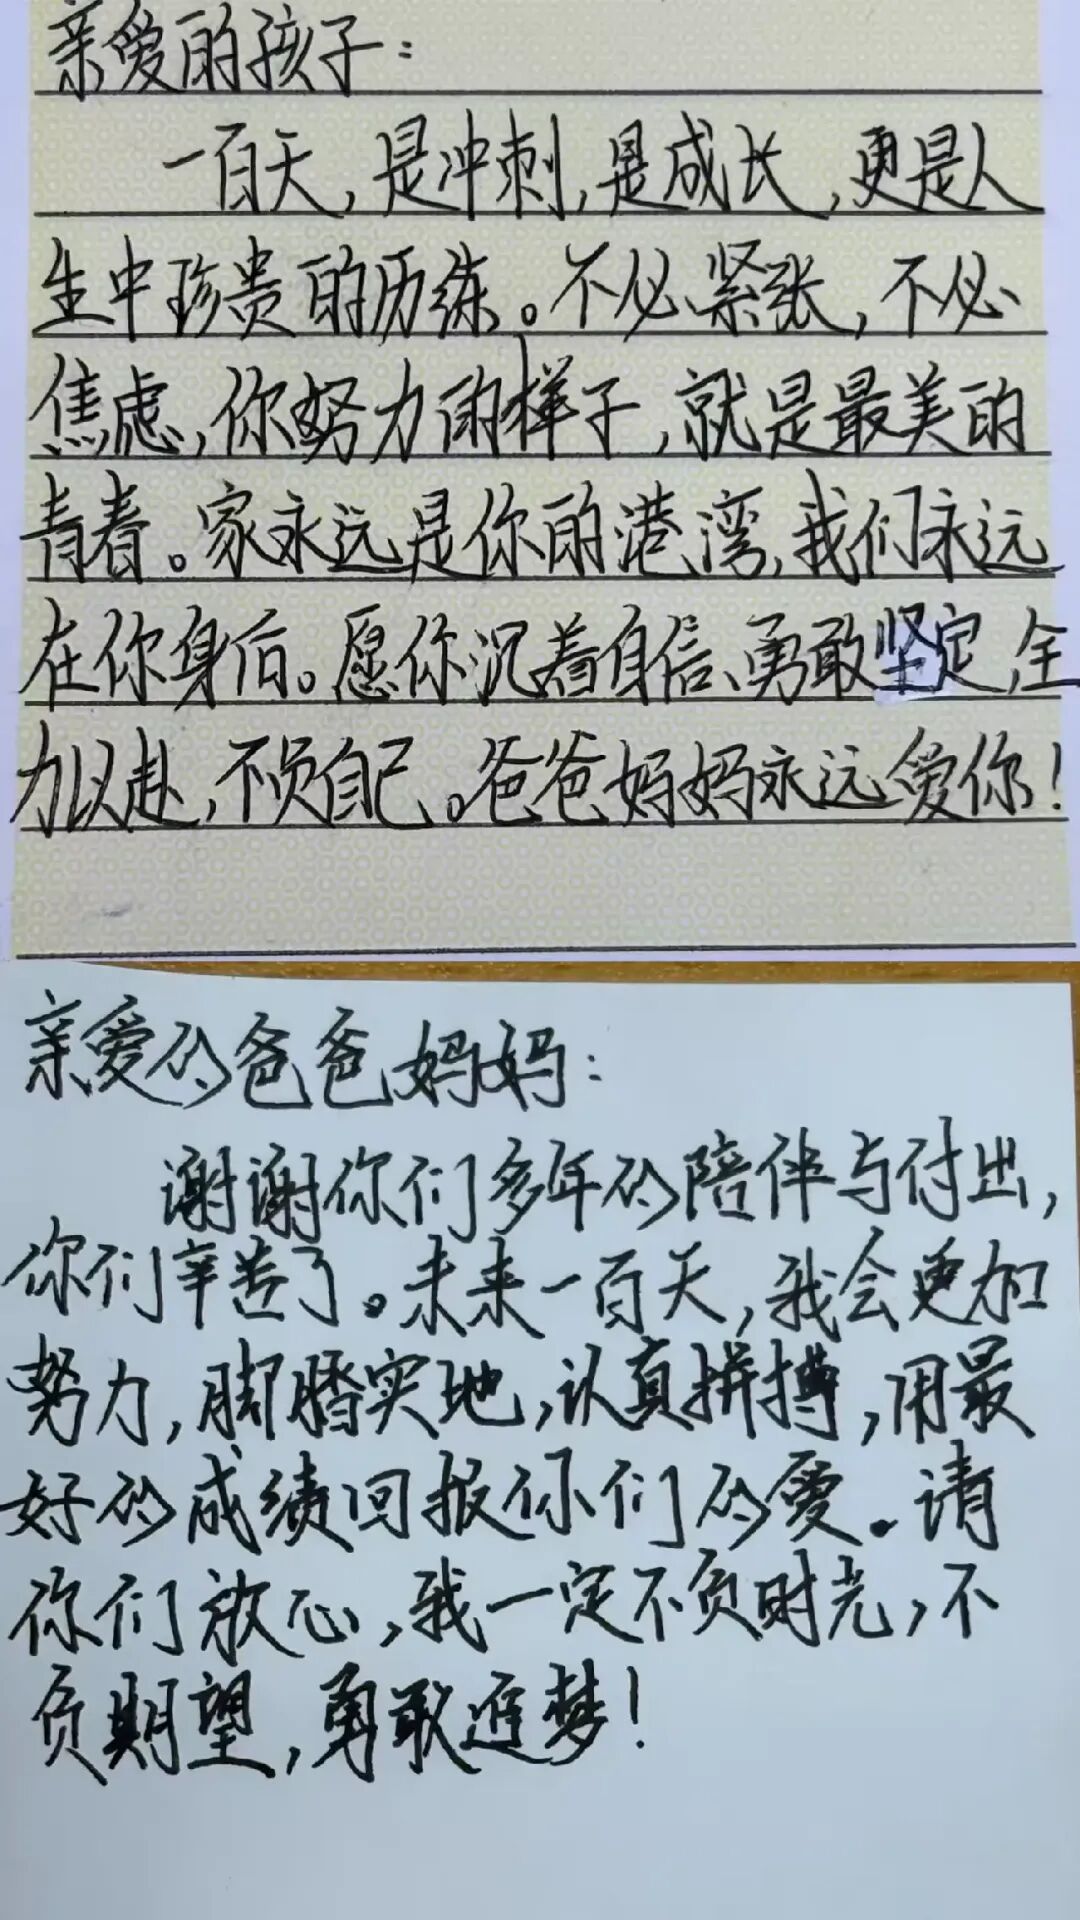 亲爱的孩子：
一百天，是冲刺，是成长，更是人
生中珍贵的历练。不必紧张，不必
焦虑，你努力的样子，就是最美的
青春。家永远是你的港湾，我们永远
在你身后。愿你沉着自信、勇敢坚定，全
力以赴，不负自己。爸爸妈妈永远爱你！
亲爱的爸爸妈妈：
谢谢你们多年的陪伴与付出，
你们辛苦了。未来一百天，我会更加
努力，脚踏实地，认真拼搏，用最
好的成绩回报你们的爱。请
你们放心，我一定不负时光，不
负期望，勇敢追梦！